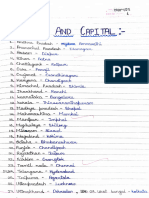 AND CAPITAL :-
1. Andhra Pradesh - Amravathi
2. Arunachal Pradesh - Itanagar
3. Assam - Dispur
4. Bihar - Patna
5. Chattisgarh - Raipur
6. Goa - Panji
7. Gujarat - Gandhinagar
8. Haryana - Chandigarh
9. Himachal Pradesh - Shimla
Jharkhand - Ranchi
Karnataka - Bangalore
Kerala - Thiruvananthapuram
Madhya Pradesh - Bhopal
Maharashtra - Mumbai
Manipur - Imphal
Meghalaya - Shillong
Mizoram - Aizawl
Nagaland - Kohima
Odisha - Bhubaneswar
Punjab - Chandigarh
Rajasthan - Jaipur
Sikkim - Gangtok
Tamil Nadu - Chennai
Telangana - Hyderabad
Tripura - Agartala
Uttarpradesh - Lucknow
Uttrakhand - Dehradun, west bangal - Kolkata